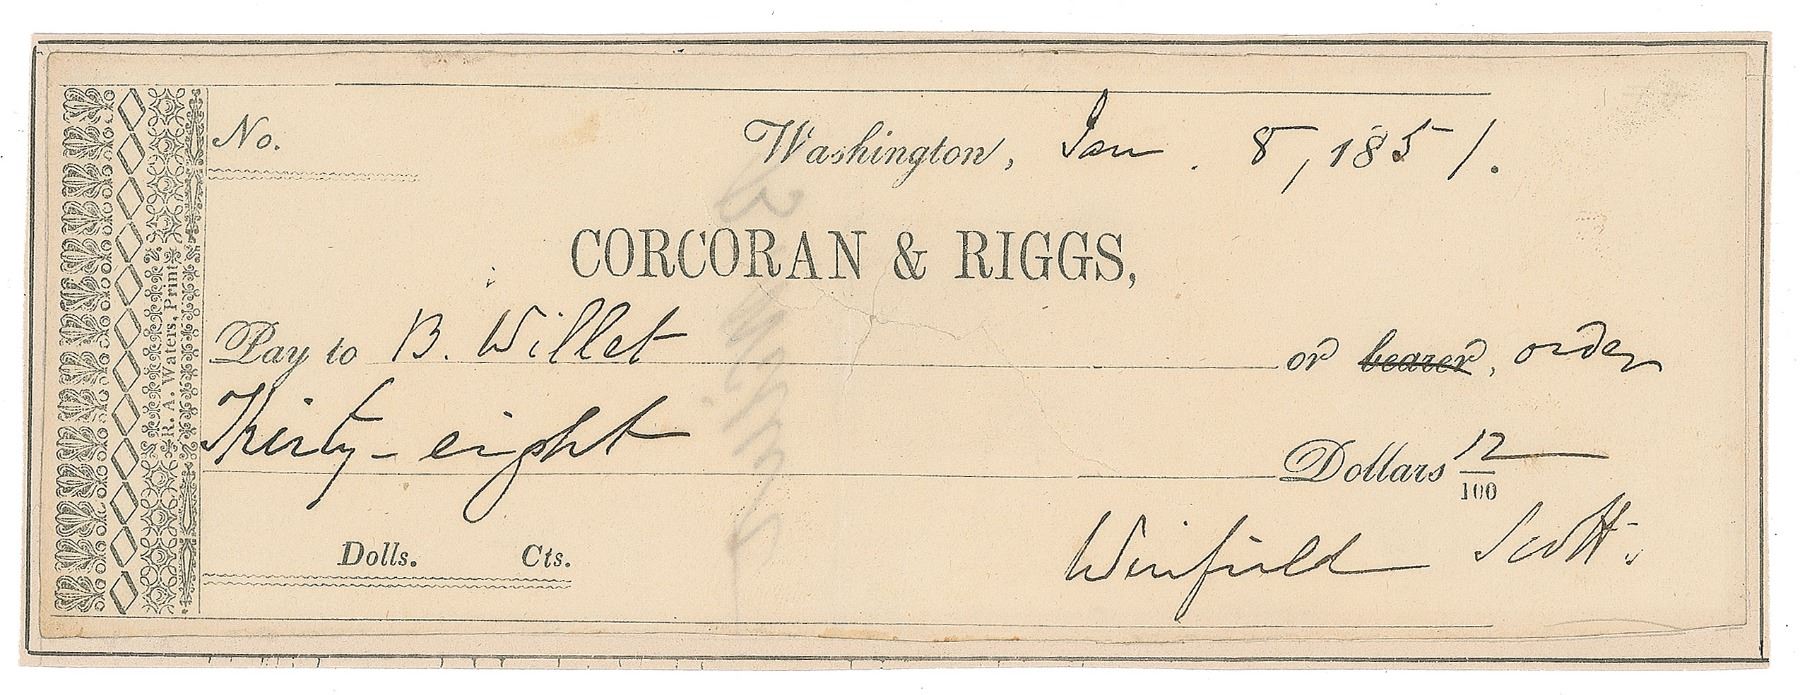 No.
Washington, Jan. 8, 1851.
CORCORAN & RIGGS,
Pay to B. Willet or bearer, order
Thirty-eight Dollars 12/100
Dolls. Cts.
Winfield Scott.
R. A. Waters, Print.